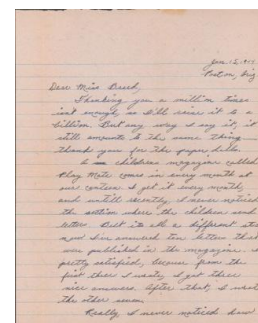 Jan. 15, 
Poston, Ariz
Dear Miss Breed,
Thanking you a million times
isn't enough, so I'll raise it to a
billion. But any way I say it, it
still amounts to the same thing
thank you for the paper dolls.
A childrens magazine called
Play Mate comes in every month at
our canteen. I get it every month,
and untill recently, I never noticed
the section where the children send
letters. But its all a different story
now I've answered ten letters that
were published in the magazine. I'm
pretty satisfied, because from the
first three I wrote, I got three
nice answers. After that, I wrote
the other seven.
Really I never noticed how